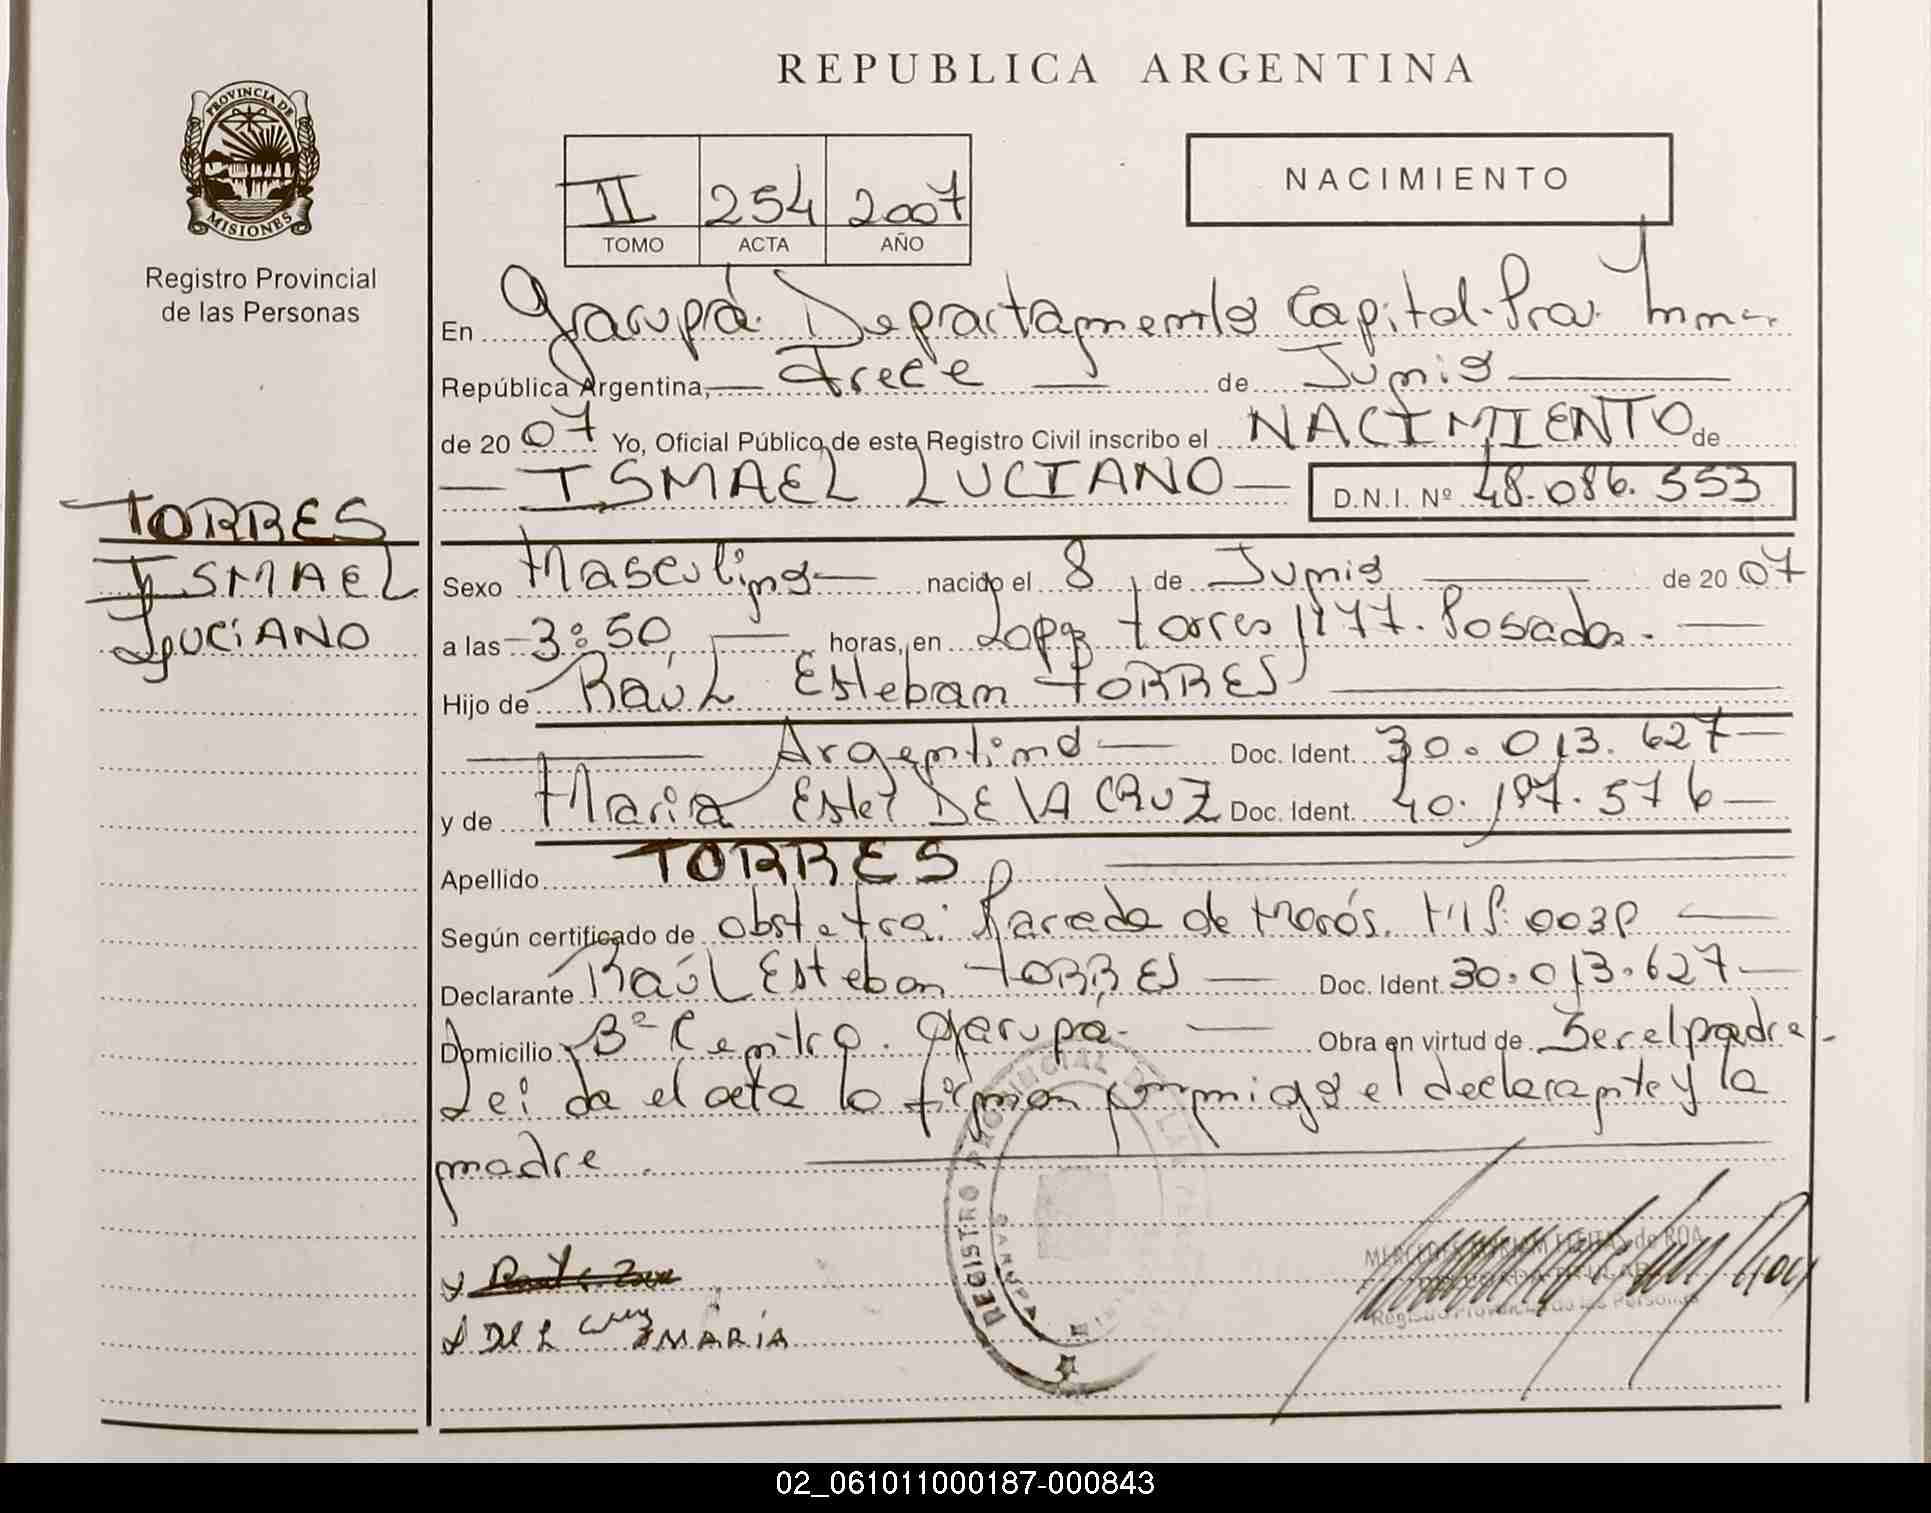 REPUBLICA ARGENTINA
PROVINCIA DE
MISIONES
Registro Provincial
de las Personas
II 254 2007
TOMO ACTA AÑO
NACIMIENTO
En Garupá Departamento Capital. Prov. Mnes.
República Argentina, Trece de Junio
de 2007 Yo, Oficial Público de este Registro Civil inscribo el NACIMIENTO de
ISMAEL LUCIANO D.N.I. Nº 48.086.553
TORRES
ISMAEL
LUCIANO
Sexo Masculino nacido el 8 de Junio de 2007
a las 3:50 horas, en Lopez torres 1177. Posadas.
Hijo de Raúl Esteban TORRES
Argentino Doc. Ident. 30.013.627
y de Maria Ester DE LA CRUZ Doc. Ident. 40.197.576
Apellido TORRES
Según certificado de obstetra: Parreda de 003P
Declarante Raúl Esteban TORRES Doc. Ident. 30.013.627
Domicilio Bº Centro. Garupá. Obra en virtud de Ser el padre.
Leida el acta lo firman conmigo el declarante y la
madre.
REGISTRO PROVINCIAL DE LAS
GARUPA
de ROA
Registro Provincial de las Personas
DE L Cruz MARIA
02_061011000187-000843